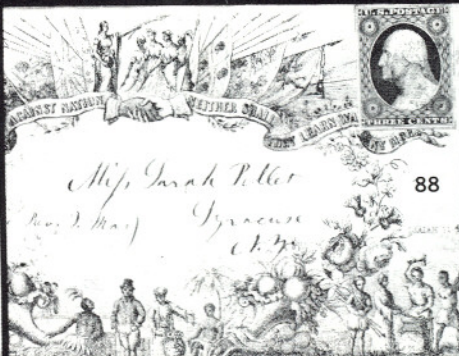 U.S. POSTAGE
THREE CENTS
AGAINST NATION NEITHER SHALL
THEY LEARN WAR ANY MORE
88
Miss Sarah Pellet
Syracuse
N.Y.